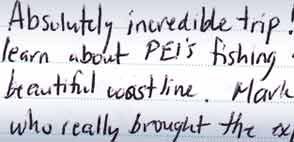 Absolutely incredible trip!
learn about PEI's fishing
beautiful coastline. Mark
who really brought the